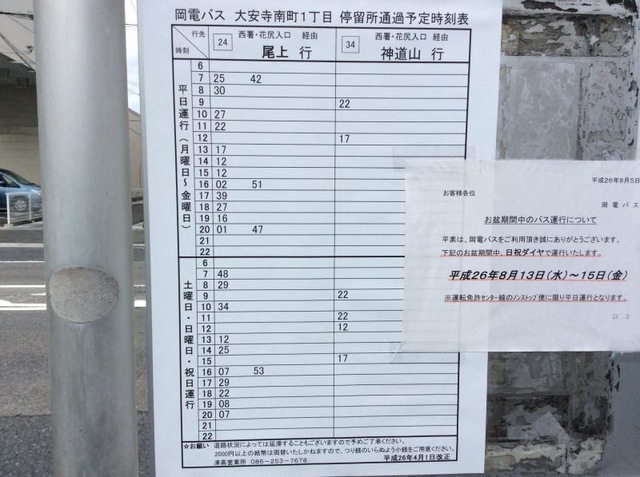 岡電バス 大安寺南町1丁目 停留所通過予定時刻表
行先
時刻
24 西署・花尻入口 経由
尾上 行
34 西署・花尻入口 経由
神道山 行
平日運行(月曜日~金曜日)
6
7 25 42
8 30
9 22
10 27
11 22
12 17
13 17
14 12
15 12
16 02 51
17 39
18 27
19 16
20 01 47
21
22
土曜日・日曜日・祝日運行
6
7 48
8 29
9 22
10 34
11 22
12 12
13 12
14 25
15 17
16 07 53
17 29
18 22
19 08
20 07
21
22
☆お願い 道路状況によっては延滞することもございますので予めご了承ください。
2000円以上の紙幣は両替いたしかねますので、つり銭のいらぬよう小銭をご用意ください。
津高営業所 086-253-7678 平成26年4月1日改正
平成26年8月5日
お客様各位
岡電バス
お盆期間中のバス運行について
平素は、岡電バスをご利用頂き誠にありがとうございます。
下記のお盆期間中、日祝ダイヤで運行いたします。
平成26年8月13日(水)~15日(金)
※運転免許センター線のノンストップ便に限り平日運行となります。
以上